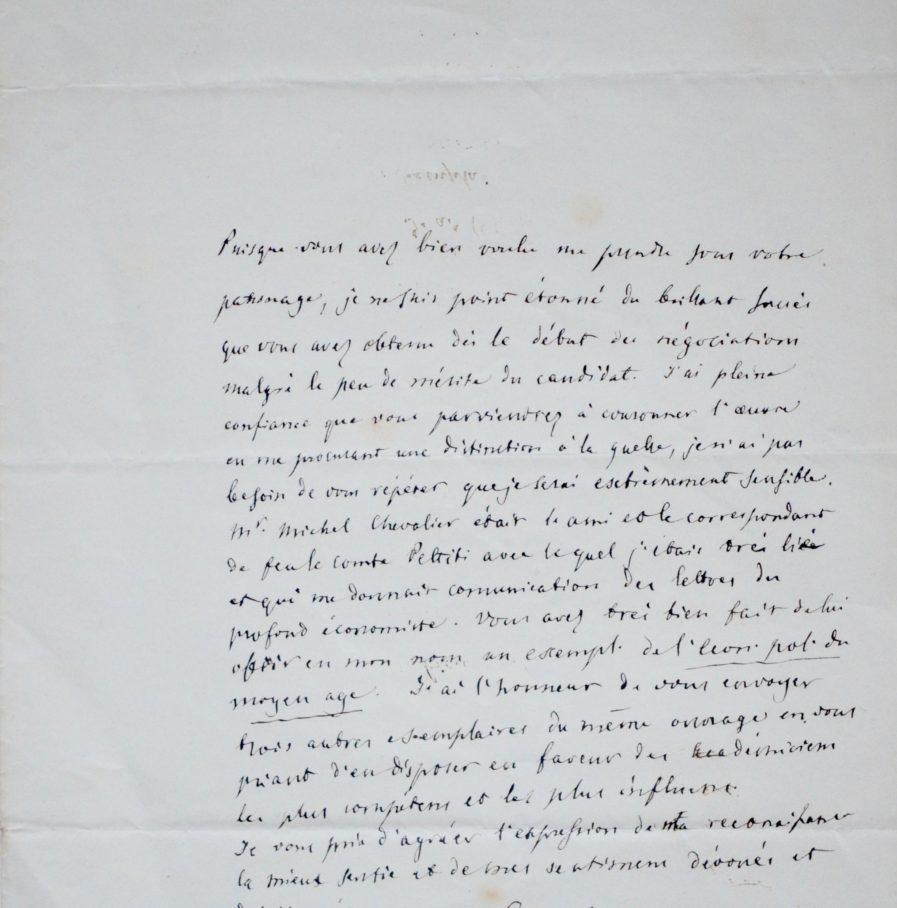 Puisque vous avez bien voulu me prendre sous votre
patronage, je ne suis point étonné du brillant succès
que vous avez obtenu dès le début des négociations
malgré le peu de mérite du candidat. J'ai pleine
confiance que vous parviendrez à couronner l'œuvre
en me procurant une distinction à la quelle, je n'ai pas
besoin de vous répéter que je serai extrèmement sensible.
Mr. Michel Chevalier était le ami et le correspondant
de feu le comte Petiti avec le quel j'étais très lié
et qui me donnait comunication des lettres du
profond économiste. Vous avez très bien fait de lui
offrir en mon nom un exempl. de l'Econ. pol. du
moyen age. J'ai l'honneur de vous envoyer
trois autres exemplaires du même ouvrage en vous
priant d'en disposer en faveur des academiciens
les plus compétens et les plus influens.
Je vous prie d'agréer l'expression de ma reconaissance
la mieux sentie et de mes sentimens dévoués et